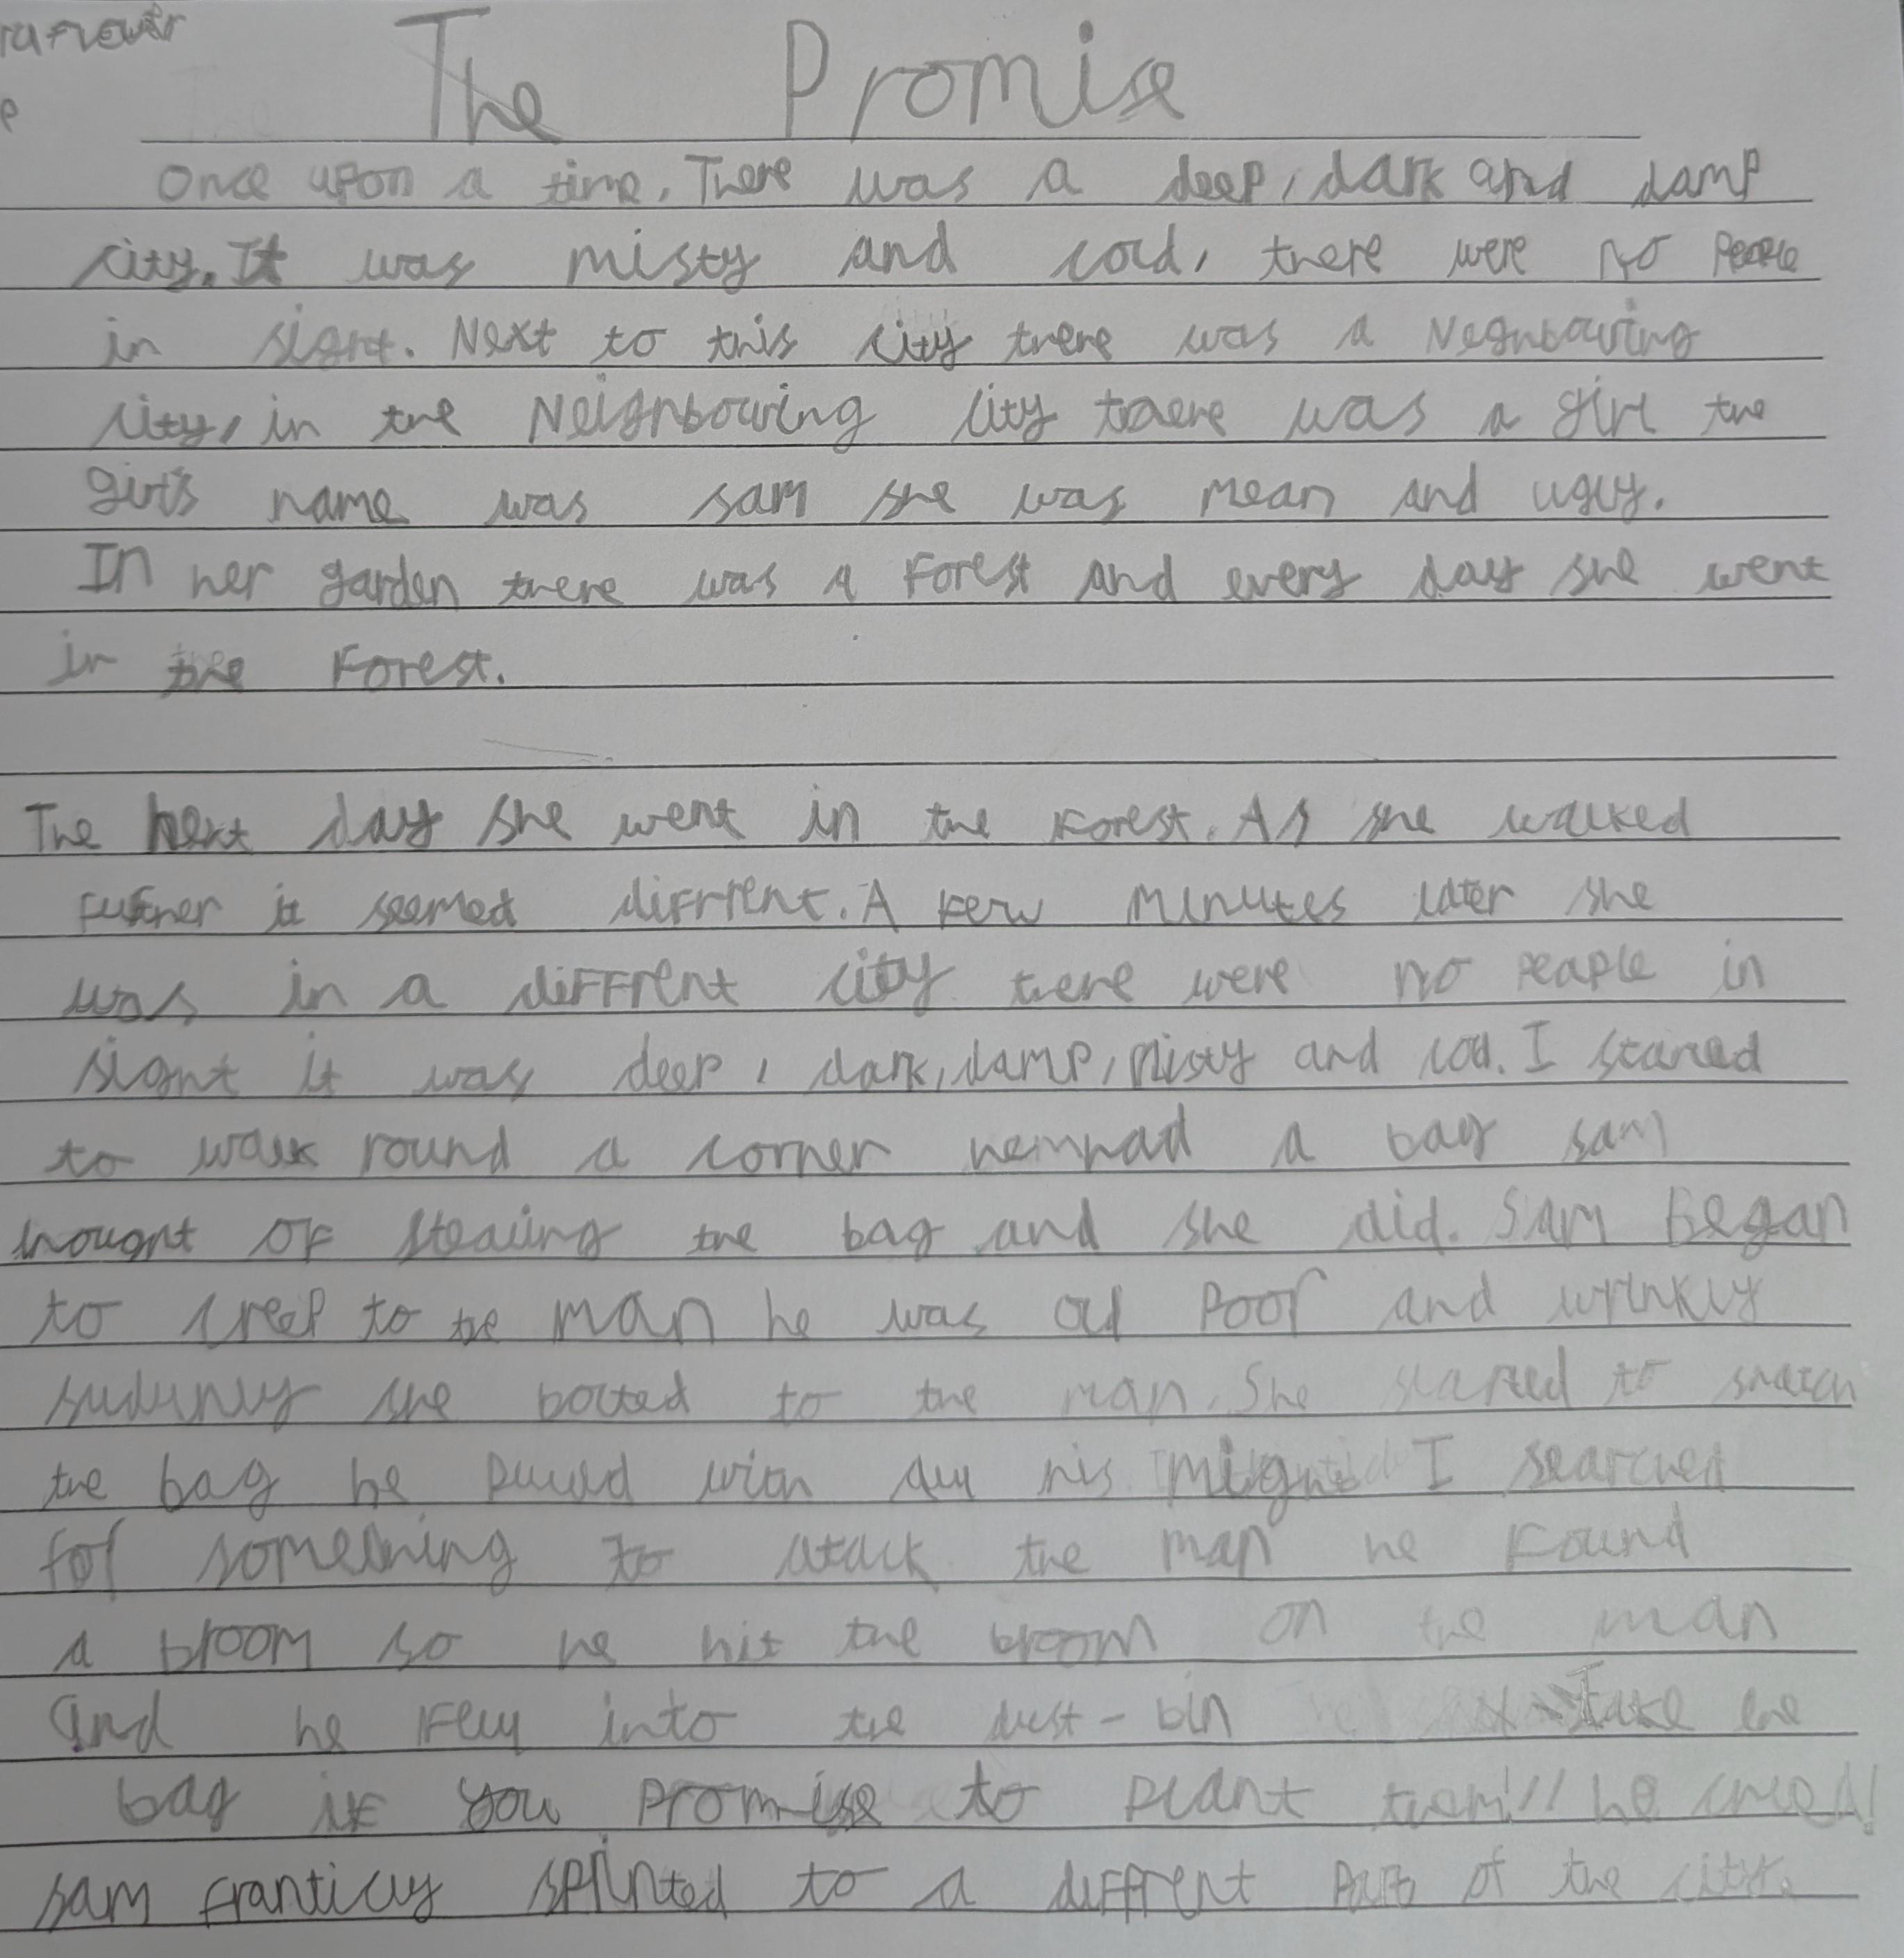 The Promise
Once upon a time. There was a deep, dark and damp
city. It was misty and cold, there were no people
in sight. Next to this city there was a Neghbouring
city, in the Neighbouring city there was a girl the
girls name was sam she was mean and ugly.
In her garden there was a Forest and every day she went
in the Forest.
The next day she went in the Forest. As she walked
futher it seemed diffrrent. A Few minutes later she
was in a diffrent city there were no peaple in
sight it was deep, dark, damp, misty and cold. I stared
to walk round a corner a bag sam
thought of stealing the bag and she did. Sam Began
to creep to the man he was old poor and wrinkly
she bolted to the man. She started to snatch
the bag he pulld with all his might I searched
for something to atack the man he Found
a broom so he hit the broom on the man
and he Fell into the dust-bin Take the
bag if you promise to plant them!" he cried!
sam franticly sprinted to a diffrent part of the city.